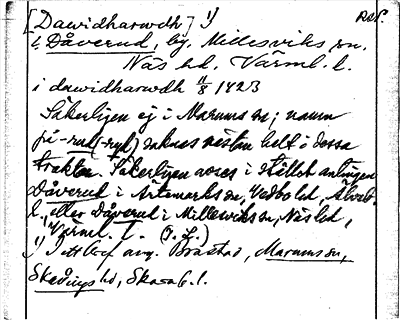 [Dawidharwdh] 1) Ref.
i Dåverud, by, Millesviks sn.
Näs hd, Värml. l.
i dawidharwdh 11/8 1423
Säkerligen ej i Marums sn; namn
på -rud (-ryd) saknas nästan helt i dessa
trakter. Säkerligen avses i stället antingen
Dåverud i Ärtemarks sn, Vedbo hd, Älvsb.
l., eller Dåverud i Millesviks sn, Näs hd,
Värml. l. (I. L.)
1) I ett brev ang. Brästad, Marums sn,
Skånings hd, Skarab. l.